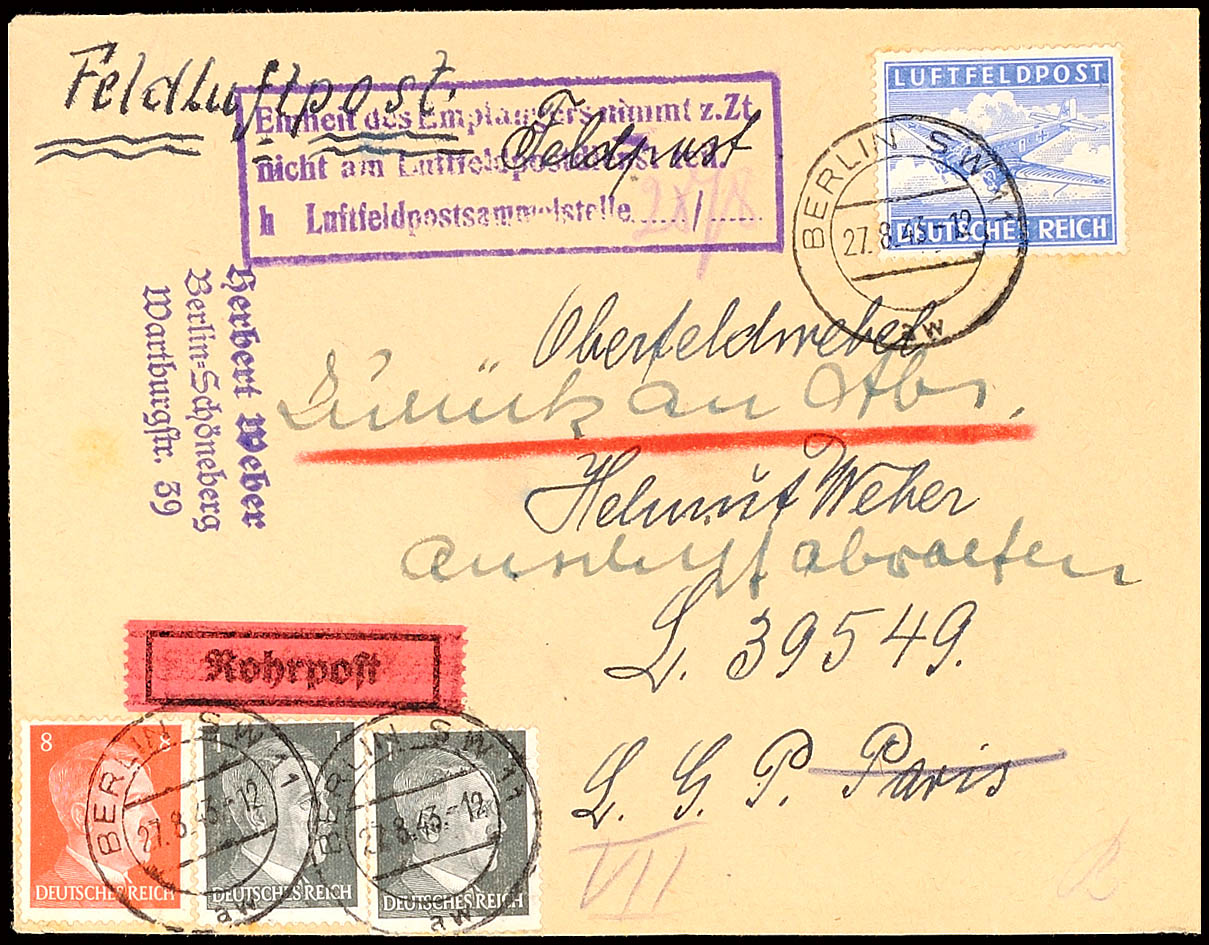 Feldluftpost.
Einheit des Empfängers nimmt z.Zt.
nicht am Luftfeldpostdienst teil.
h Luftfeldpostsammelstelle 28/8
Feldpost
LUFTFELDPOST
DEUTSCHES REICH
BERLIN SW 11
27.8.43.-12
aw
Herbert Weber
Berlin=Schöneberg
Wartburgstr. 39
Oberfeldwebel
Zurück an Abs.
Helmut Weber
abwarten
L. 39549.
L. G. P. Paris
VII
Rohrpost
8 8
DEUTSCHES REICH
1 1
DEUTSCHES REICH
1 1
DEUTSCHES REICH
BERLIN SW 11
27.8.43.-12
aw
BERLIN SW 11
27.8.43.-12
aw